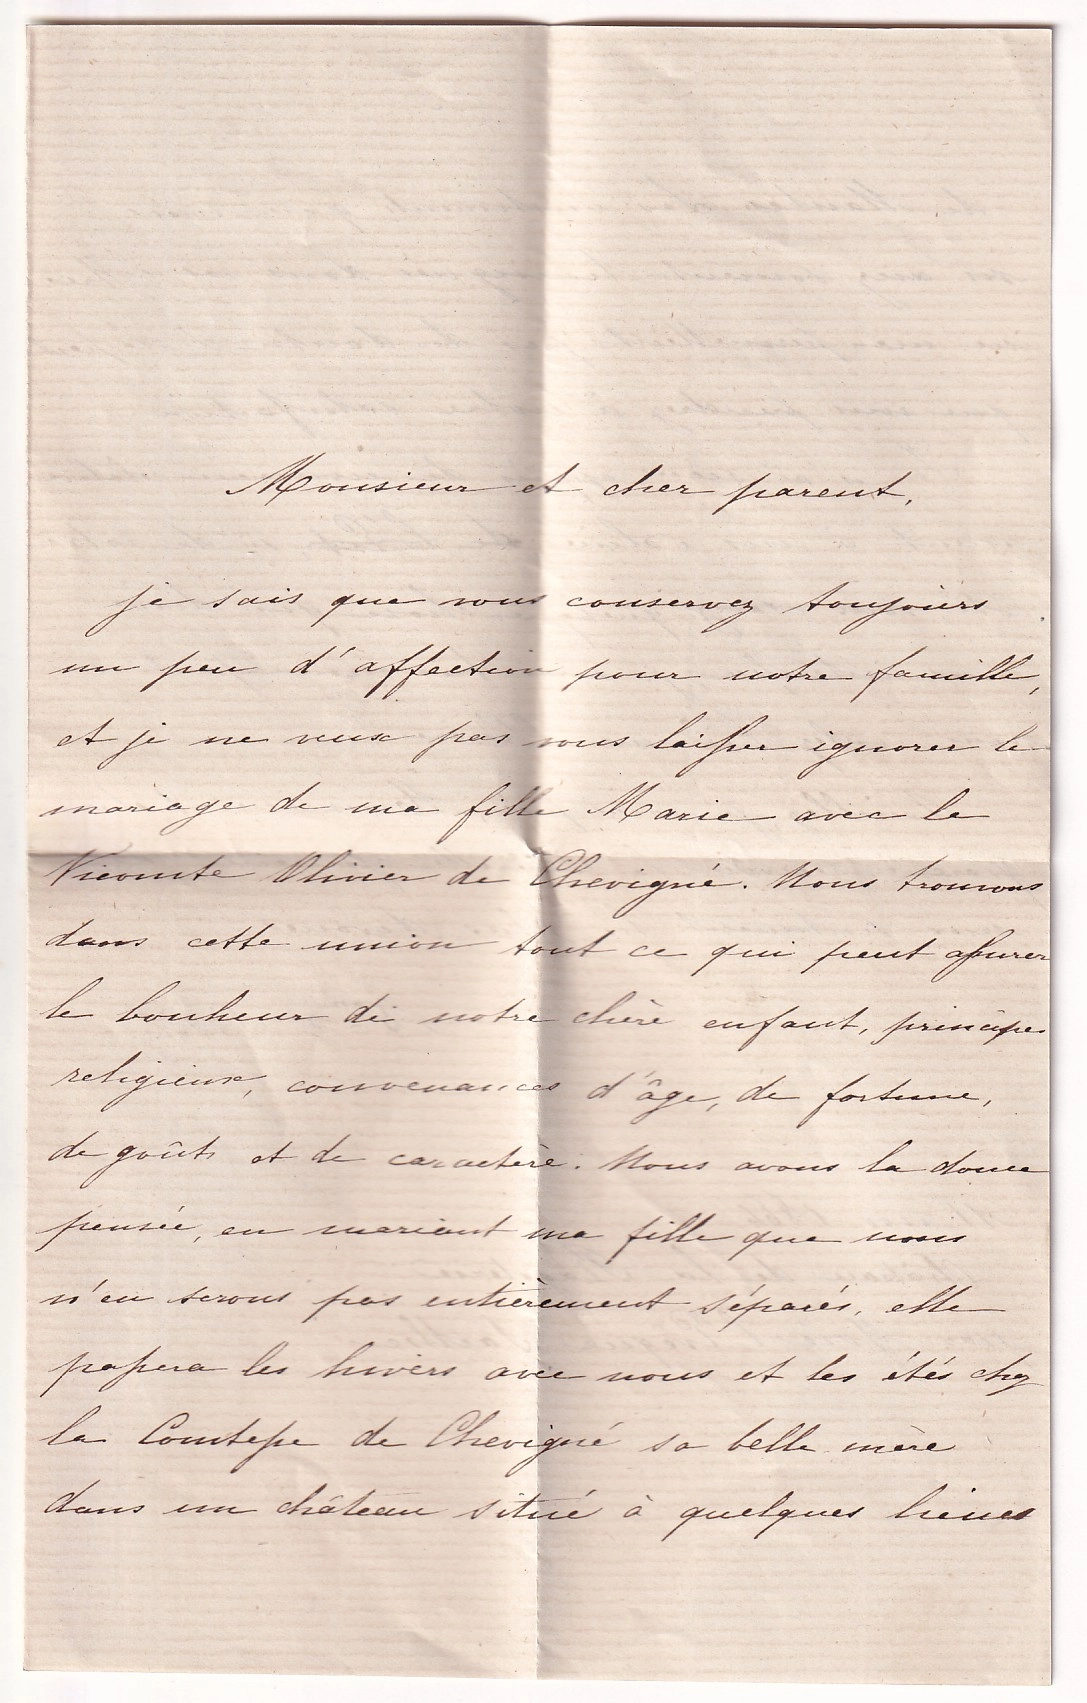 Monsieur et cher parent,
je sais que vous conservez toujours
un peu d'affection pour notre famille,
et je ne veux pas vous laisser ignorer le
mariage de ma fille Marie avec le
Vicomte Olivier de Chevigné. Nous trouvons
dans cette union tout ce qui peut assurer
le bonheur de notre chère enfant, principes
religieux, convenances d'âge, de fortune,
de goûts et de caractère. Nous avons la douce
pensée, en mariant ma fille que nous
n'en serons pas entièrement séparés, elle
passera les hivers avec nous et les étés chez
la Comtesse de Chevigné sa belle mère
dans un château situé à quelques lieues